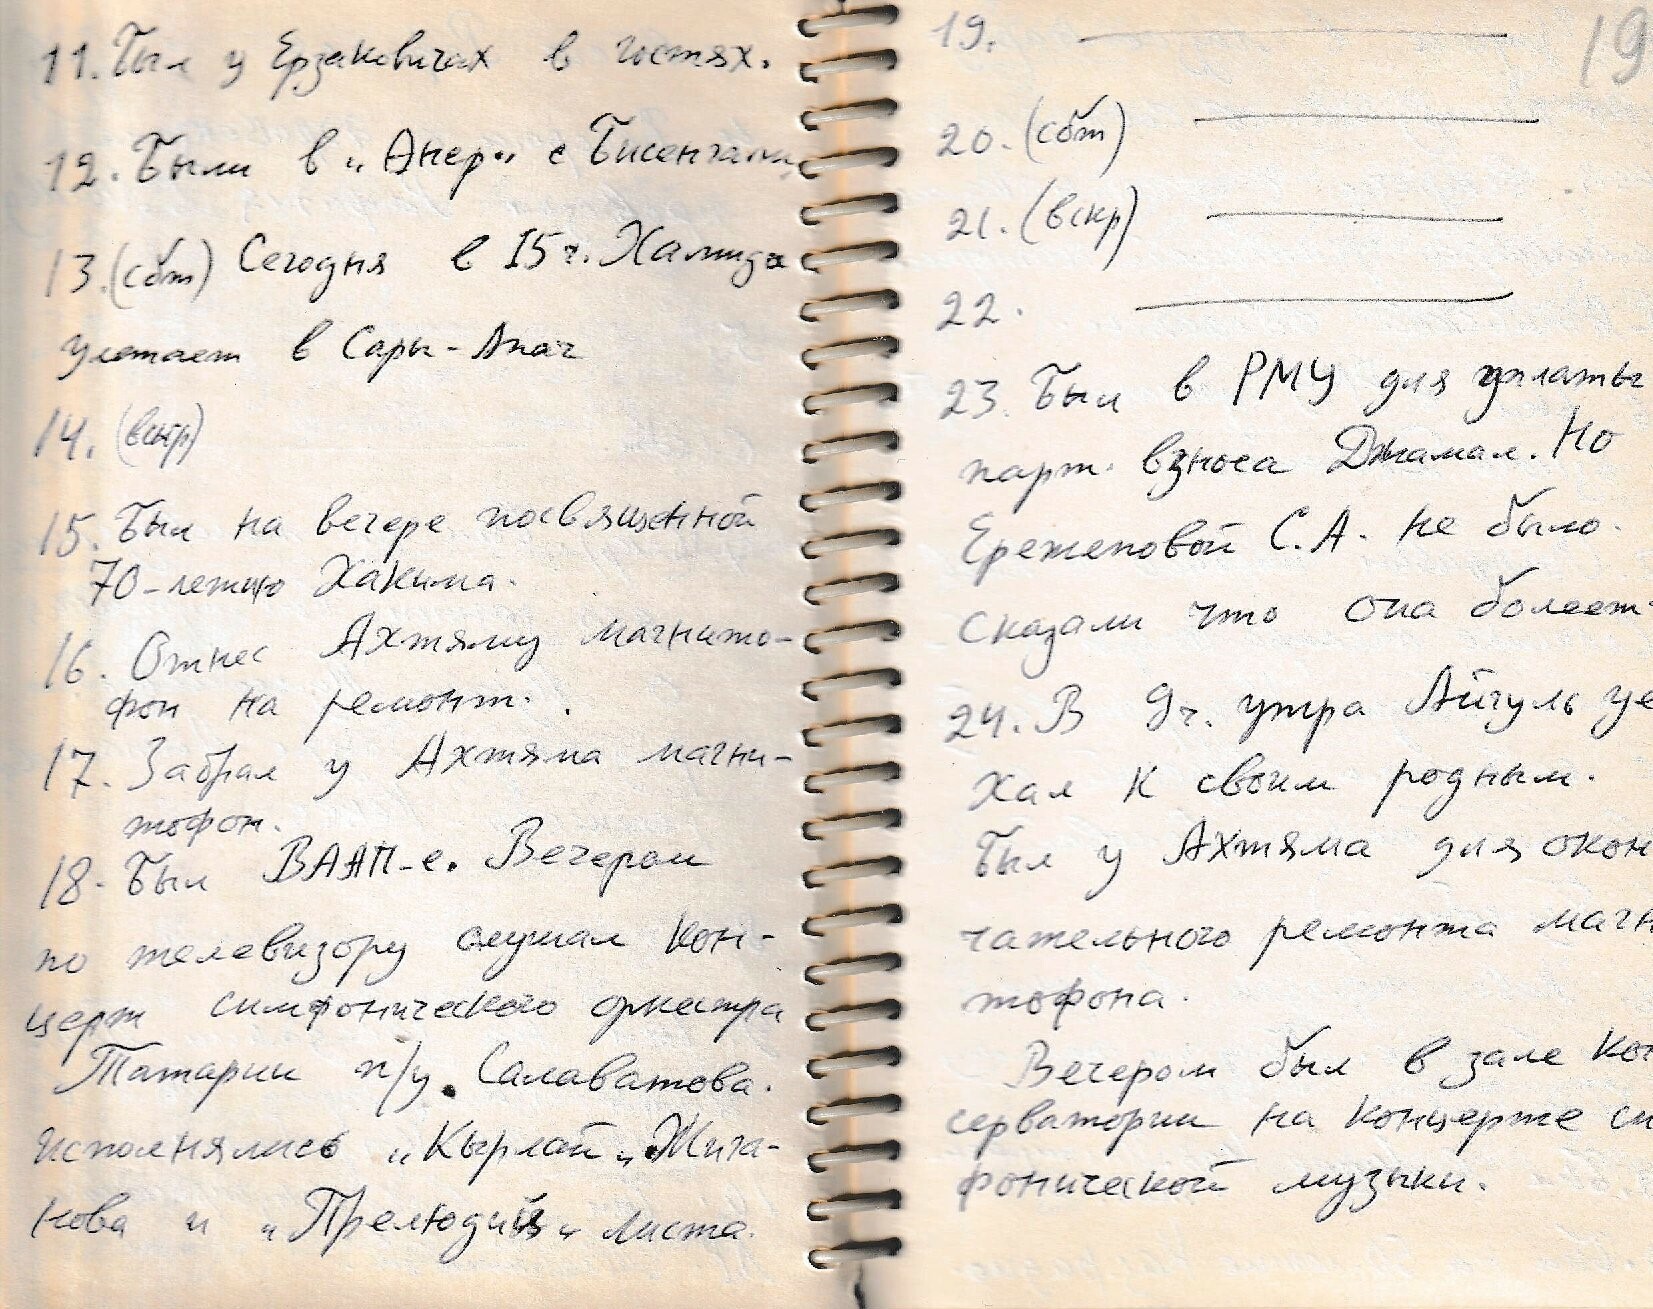 11. Был у Ерзаковичах в гостях.
12. Были в „Анер“ с
13. (сбт) Сегодня в 15 ч. Халида
улетает в Сары-Агач
14. (вскр)
15. Был на вечере посвященной
70-летию Хакима.
16. Отнес Ахтяму магнито-
фон на ремонт.
17. Забрал у Ахтяма магни-
тофон.
18. Был ВААП-е. Вечером
по телевизору слушал кон-
церт симфонического оркестра
Татарии п/у. Салаватова.
исполнялись „Кырлай“ Жига-
нова и „Прелюдий“ Листа.
19
19.
20. (сбт)
21. (вскр)
22.
23. Был в РМУ для уплаты
парт. взноса Джамал. Но
Ережеповой С.А. не было.
Сказали что она болеет.
24. В 9 ч. утра Айгуль уе
хал к своим родным.
Был у Ахтяма для окон
чательного ремонта магн
тофона.
Вечером был в зале кон
серватории на концерте си
фонической музыки.